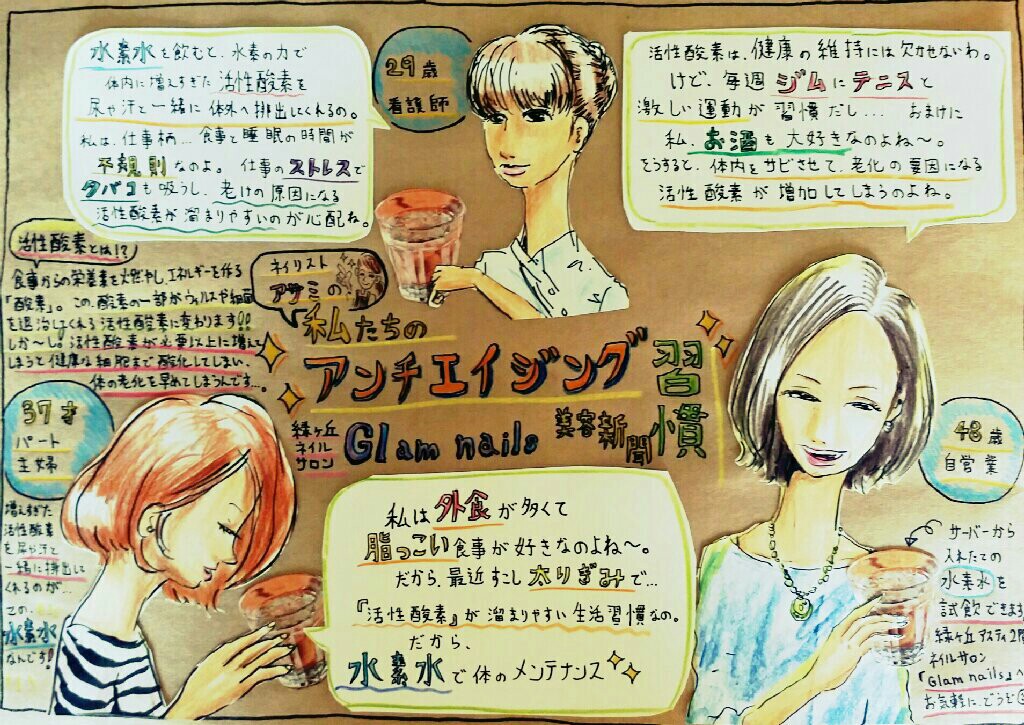 水素水を飲むと、水素の力で
体内に増えすぎた活性酸素を
尿や汗と一緒に体外へ排出してくれるの。
私は、仕事柄…食事と睡眠の時間が
不規則なのよ。仕事のストレスで
タバコも吸うし、老けの原因になる
活性酸素が溜まりやすいのが心配ね。
29歳
看護師
活性酸素は、健康の維持には欠かせないわ。
けど、毎週ジムにテニスと
激しい運動が習慣だし…おまけに
私、お酒も大好きなのよね～。
そうすると、体内をサビさせて、老化の要因になる
活性酸素が増加してしまうのよね。
活性酸素とは!?
食事からの栄養素を燃やし、エネルギーを作る
「酸素」。この、酸素の一部がウィルスや細菌
を退治してくれる活性酸素に変わります!!
しか～し!活性酸素が必要以上に増えて
しまうと健康な細胞まで酸化してしまい、
体の老化を早めてしまうんです…。
ネイリスト
アサミの
私たちの
アンチエイジング習慣
緑ヶ丘
ネイル
サロン
Glam nails
美容新聞
37才
パート
主婦
増えすぎた
活性酸素
を尿や汗と
一緒に排出して
くれるのが…
この、
水素水
なんです!
私は外食が多くて
脂っこい食事が好きなのよね～。
だから、最近すこし太りぎみで…
『活性酸素』が溜まりやすい生活習慣なの。
だから、
水素水で体のメンテナンス
48歳
自営業
サーバーから
入れたての
水素水を
試飲できます
緑ヶ丘アスティ2階
ネイルサロン
「Glam nails」へ
お気軽に、どうぞ